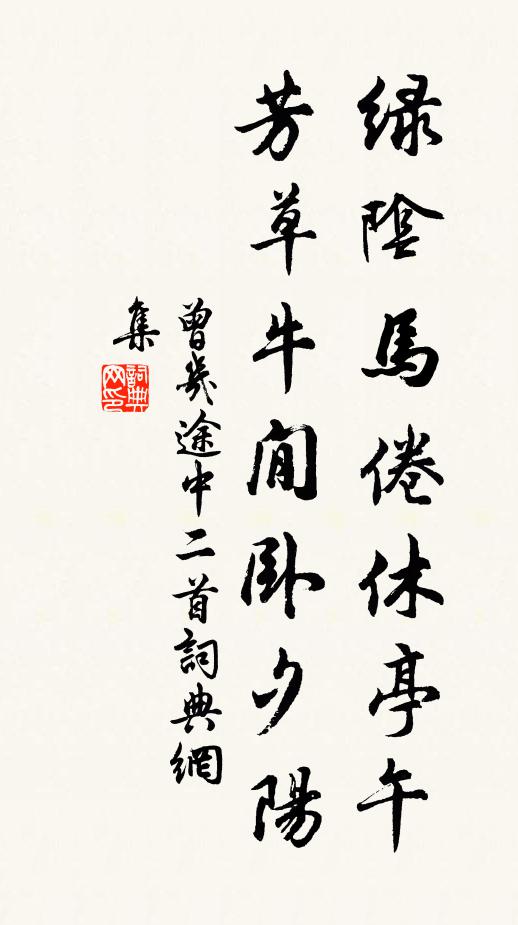 緑陰馬倦休亭午
芳草牛閒卧夕陽
曾幾途中二首詞典網
集
詞典网印